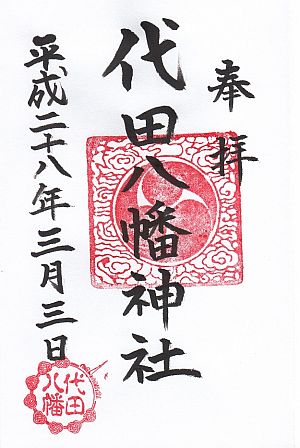 奉拝
代田八幡神社
平成二十八年三月三日
代田
八幡